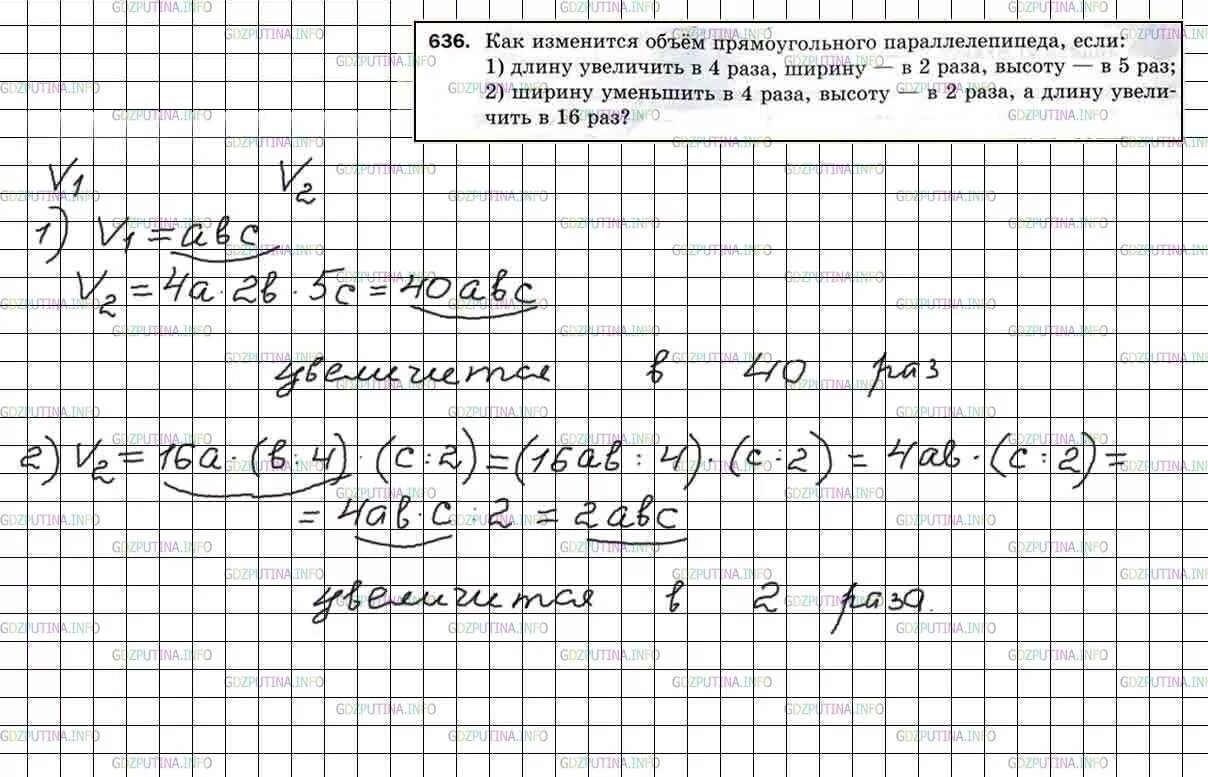 636. Как изменится объём прямоугольного параллелепипеда, если:
1) длину увеличить в 4 раза, ширину — в 2 раза, высоту — в 5 раз;
2) ширину уменьшить в 4 раза, высоту — в 2 раза, а длину увели-
чить в 16 раз?
V₁ V₂
1) V₁ = авс
V₂ = 4а · 2в · 5с = 40авс
увеличится в 40 раз
2) V₂ = 16а · (в : 4) · (с : 2) = (16ав : 4) · (с : 2) = 4ав · (с : 2) =
= 4ав · с : 2 = 2авс
увеличится в 2 раза.
GDZPUTINA.INFO